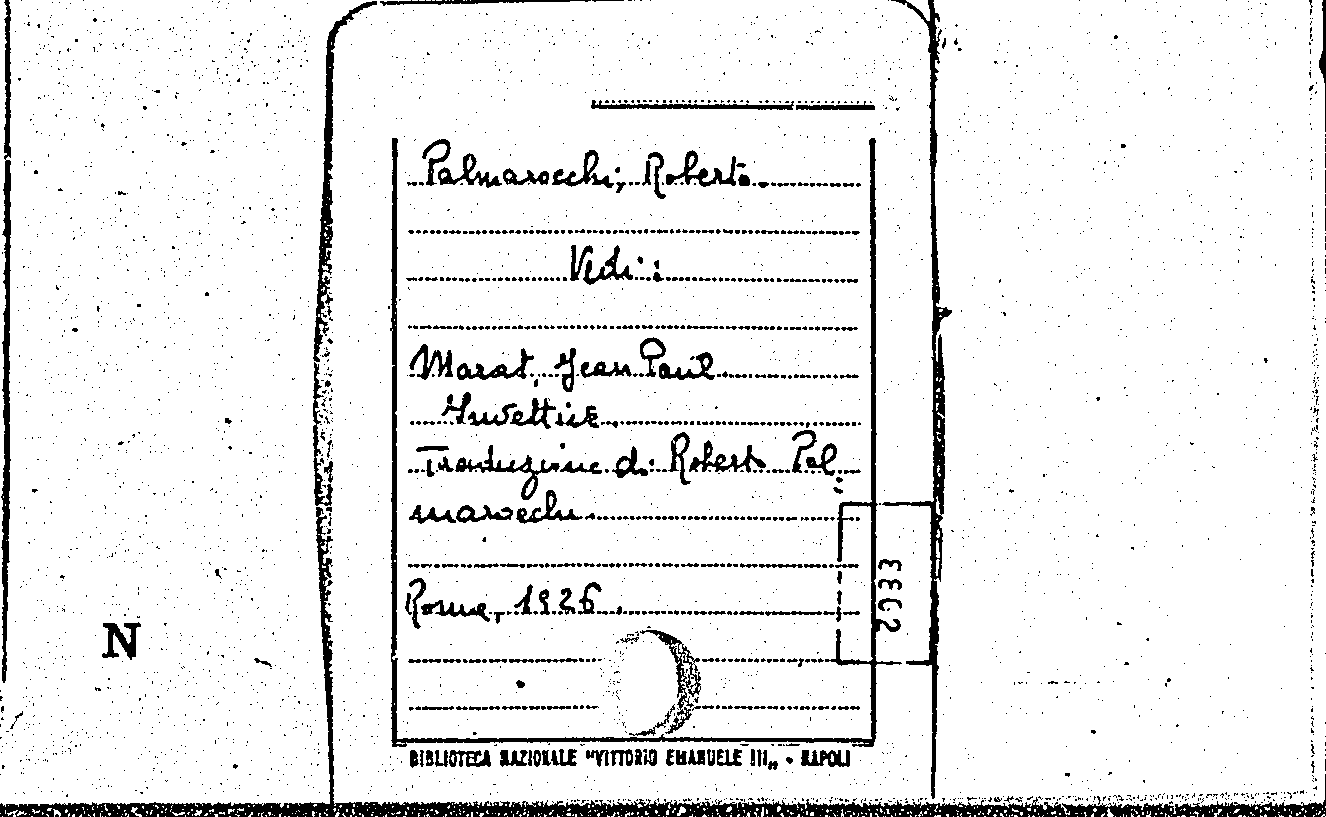 Palmarocchi, Roberto.
Vedi:
Marat, Jean Paul
Invettive.
Traduzione di Roberto Pal
marocchi.
Roma, 1926.
N
BIBLIOTECA NAZIONALE "VITTORIO EMANUELE III„ - NAPOLI